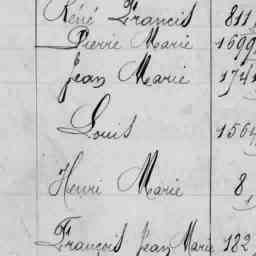 René Francis 811
Pierre Marie 1699
Jean Marie 1741
Louis 1564
Henri Marie 8
François Jean Marie 182